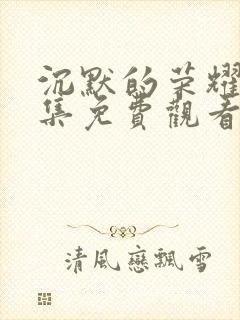 沉默的荣耀
集免費觀看
清風戀飄雪